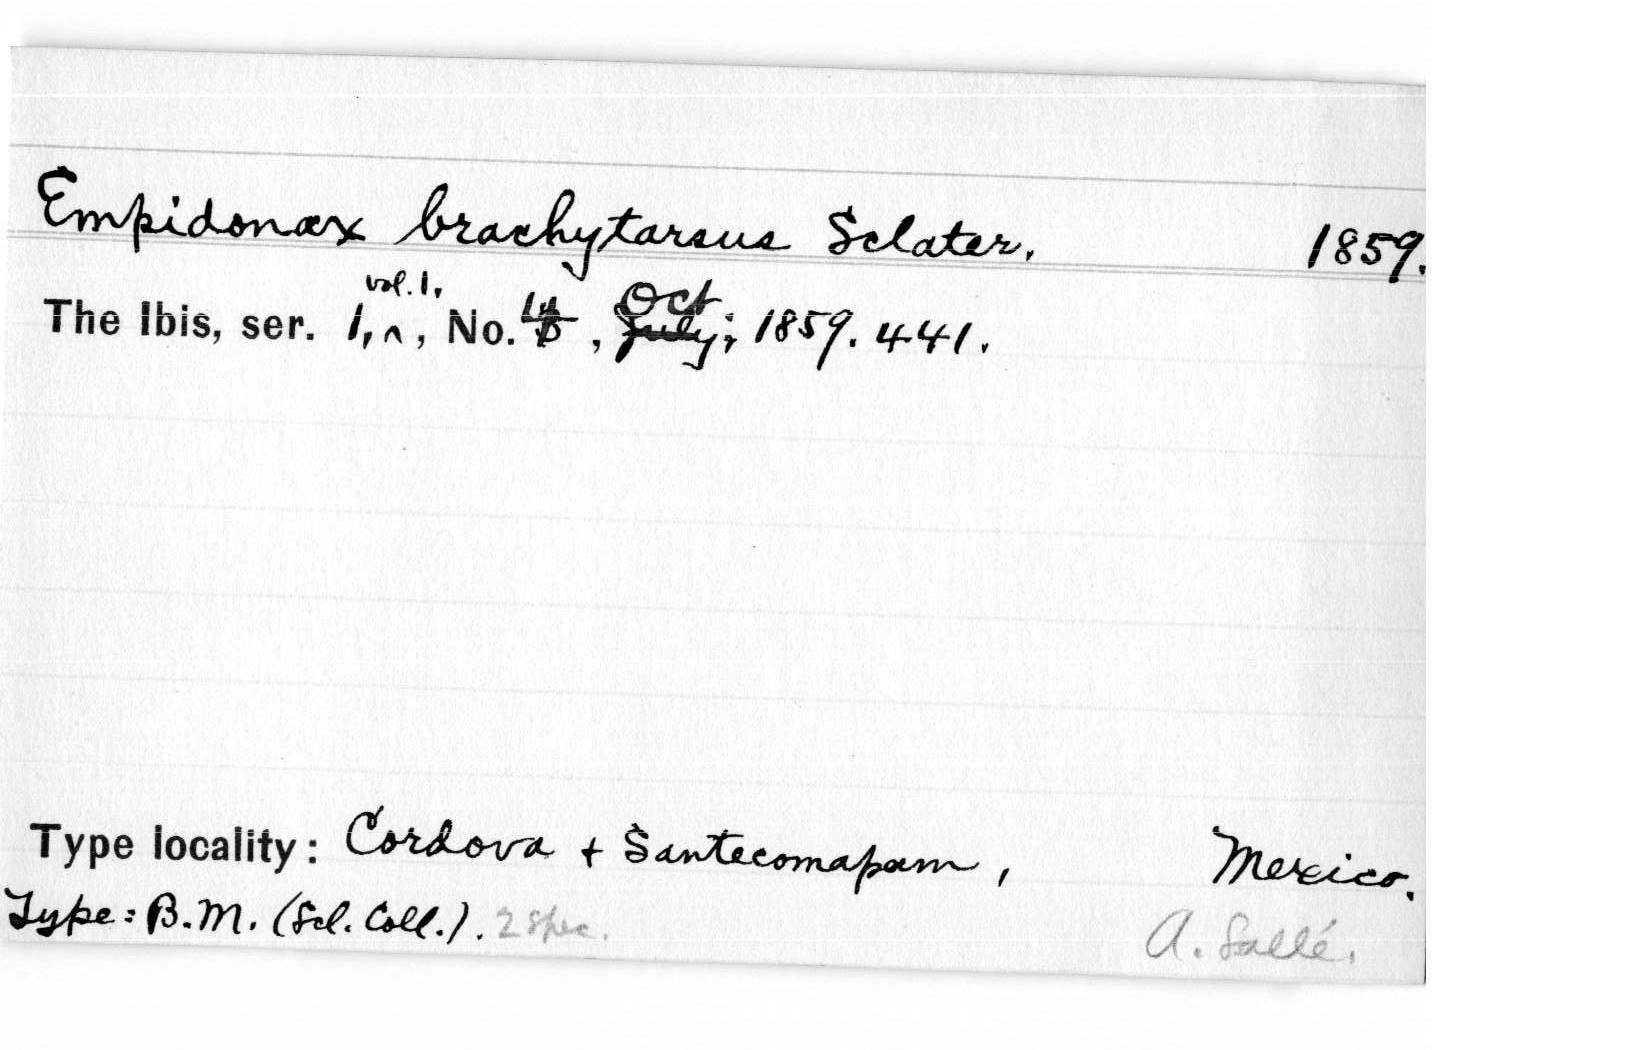 Empidonax brachytarsus Sclater. 1859.
The Ibis, ser. 1, vol. 1, ^, No. 4, Oct July; 1859. 441.
Type locality: Cordova + Santecomapam, Mexico.
Type: B.M. (Scl. Coll.). 2 spec. A. Sallé.